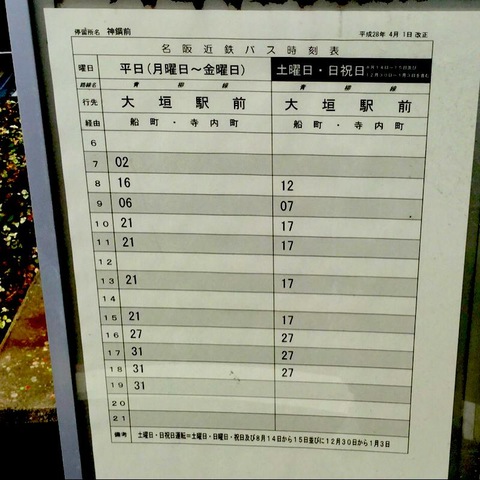 停留所名 神鋼前 平成28年 4月 1日 改正
名阪近鉄バス時刻表
曜日 平日(月曜日～金曜日) 土曜日・日祝日
路線名 青柳線 青柳線
行先 大垣駅前 大垣駅前
経由 船町・寺内町 船町・寺内町
6
7 02
8 16 12
9 06 07
10 21 17
11 21 17
12
13 21 17
14
15 21 17
16 27 27
17 31 27
18 31 27
19 31
20
21
備考 土曜日・日祝日運転＝土曜日・日曜日・祝日及び8月14日から15日並びに12月30日から1月3日